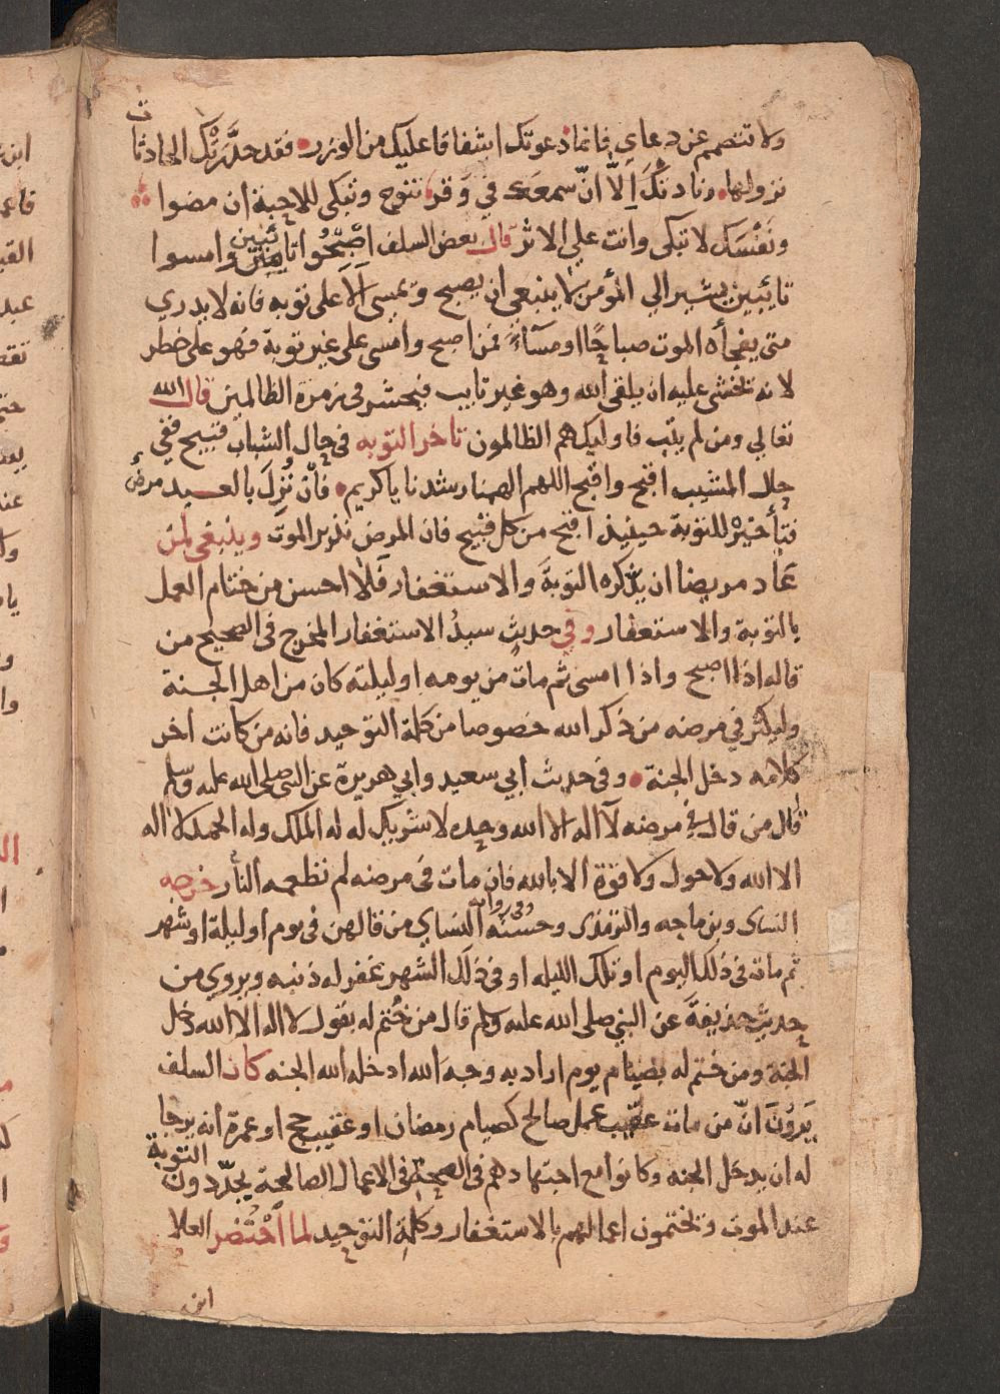 ولا تتصمم عن دعاي فانما دعوتك اشفاقا عليك من الوزر فقد حذرتك الحادثات
نزولها ونادتك الا ان سمعك في وقر تنوح وتبكي للاحبة ان مضوا
ونفسك لا تبكي وانت على الاثر قال بعض السلف اصبحوا تايبين وامسوا
تايبين يشير الي المؤمن لا ينبغي ان يصبح ويمسى الا على توبه فانه لا يدري
متى يفجأه الموت صباحًا او مسآءً فمن اصبح وامسى على غير توبة فهو على خطر
لانه يخشى عليه ان يلقى الله وهو غير تايب فيحشر في زمرة الظالمين قال الله
تعالي ومن لم يتب فاوليك هم الظالمون تاخر التوبه في حال الشباب قبيح ففي
حال المشيب اقبح واقبح اللهم الهمنا رشدنا يا كريم فان نزل بالعبد مرض
فتأخيره للتوبة حينيذ اقبح من كل قبيح فان المرض نذير الموت وينبغي لمن
عاد مريضا ان يذكره التوبة والاستغفار فلا احسن من ختام العمل
بالتوبة والاستغفار وفي حديث سيد الاستغفار المخرج في الصحيح من
قاله اذا اصبح واذا امسى ثم مات من يومه او ليلته كان من اهل الجنة
وليكثر في مرضه من ذكر الله خصوصا من كلمة التوحيد فانه من كانت اخر
كلامه دخل الجنة وفي حديث ابي سعيد وابي هريرة عن النبي صلى الله عليه وسلم
قال من قال في مرضه لا اله الا الله وحده لا شريك له له الملك وله الحمد لا اله
الا الله ولا حول ولا قوة الا بالله فان مات في مرضه لم تطعمه النار خرجه
النساى وبن ماجه والترمذى وحسنه وفي رواية النساي من قالهن في يوم او ليلة او شهر
ثم مات في ذلك اليوم او تلك الليله او في ذلك الشهر غفر له ذنبه ويروي من
حديث حذيفة عن النبي صلى الله عليه وسلم قال من ختم له بقول لا اله الا الله دخل
الجنة ومن ختم له بصيام يوم اراد به وجه الله ادخله الله الجنه كان السلف
يرون ان من مات عقيب عمل صالح كصيام رمضان او عقيب حج او عمرة انه يرجا
له ان يدخل الجنه وكانوا مع اجتهادهم في الصحة في الاعمال الصالحة يجددون التوبة
عند الموت ويختمون اعمالهم بالاستغفار وكلمة التوحيد لما احتضر العلا
ابن